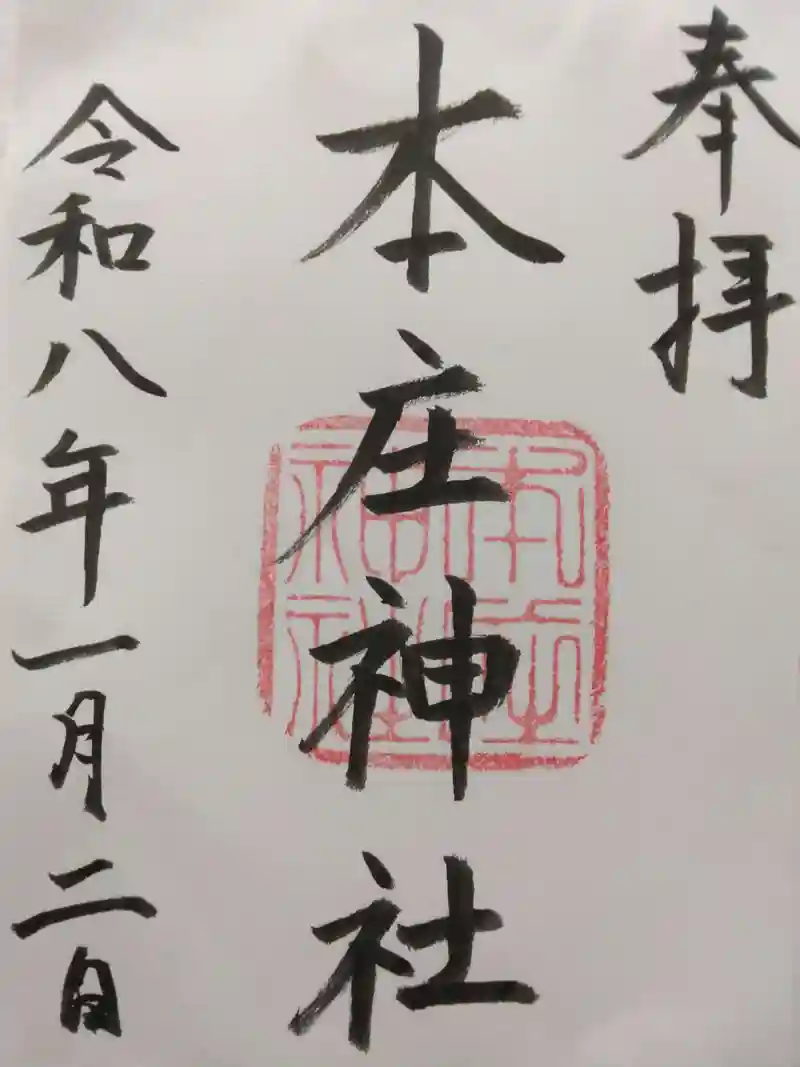 奉拝
本庄神社
本庄神社
令和八年一月二日